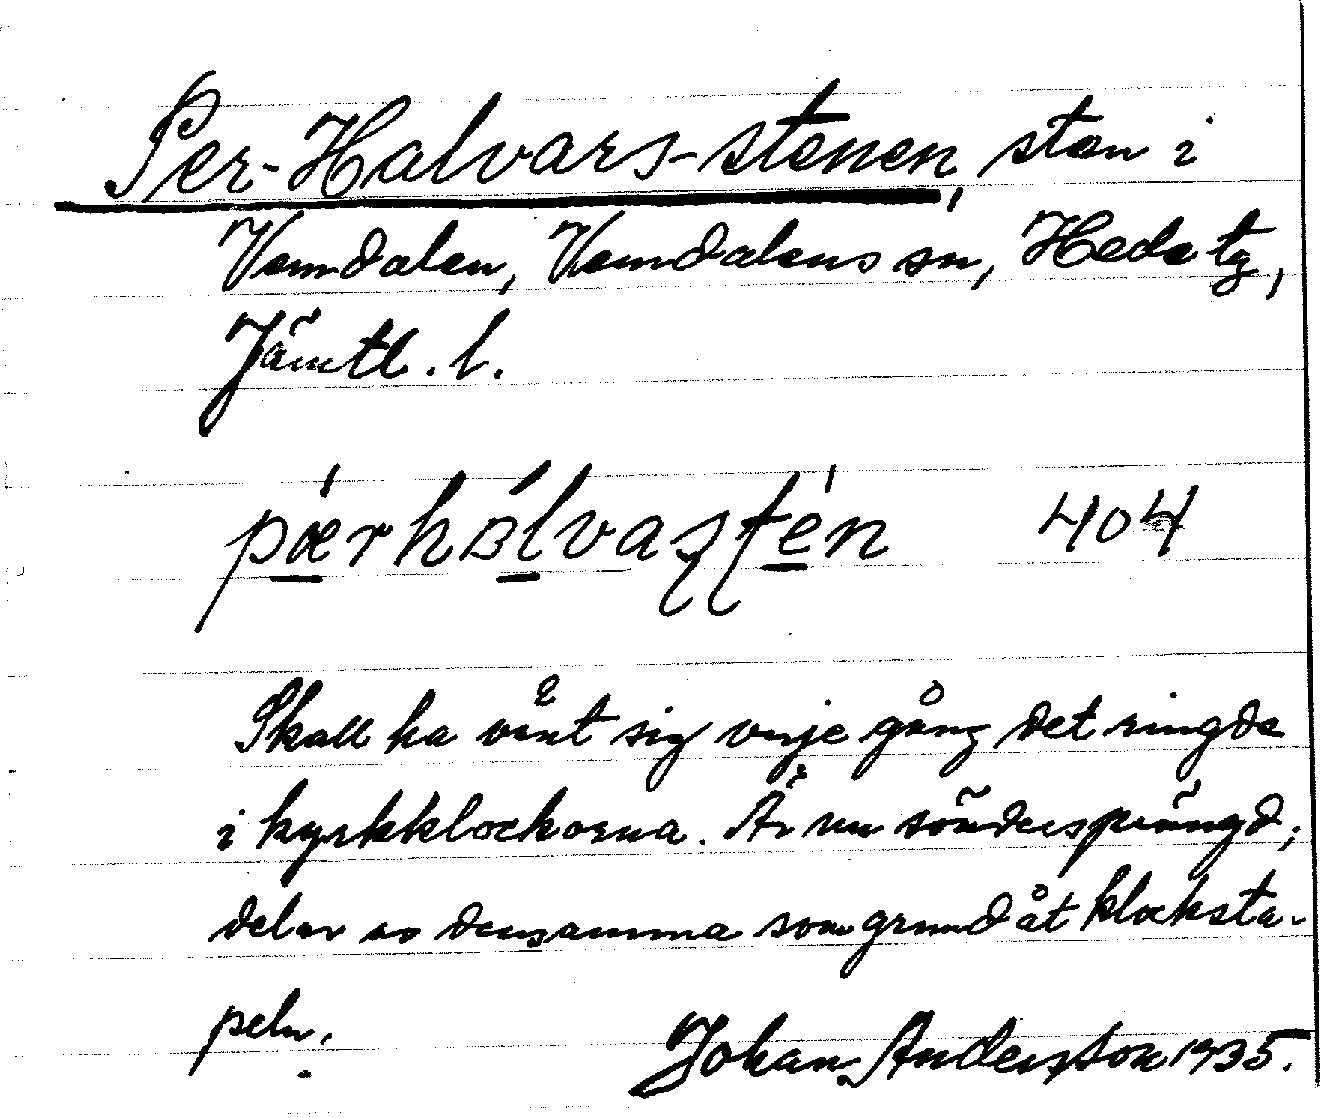 Per-Halvars-stenen, sten i
Vemdalen, Vemdalens sn, Hede tg,
Jämtl. l.
404
Skall ha vänt sig varje gång det ringde
i kyrkklockorna. Är nu söndersprängd;
delar av densamma som grund åt klocksta-
peln.
Johan Andersson 1935.